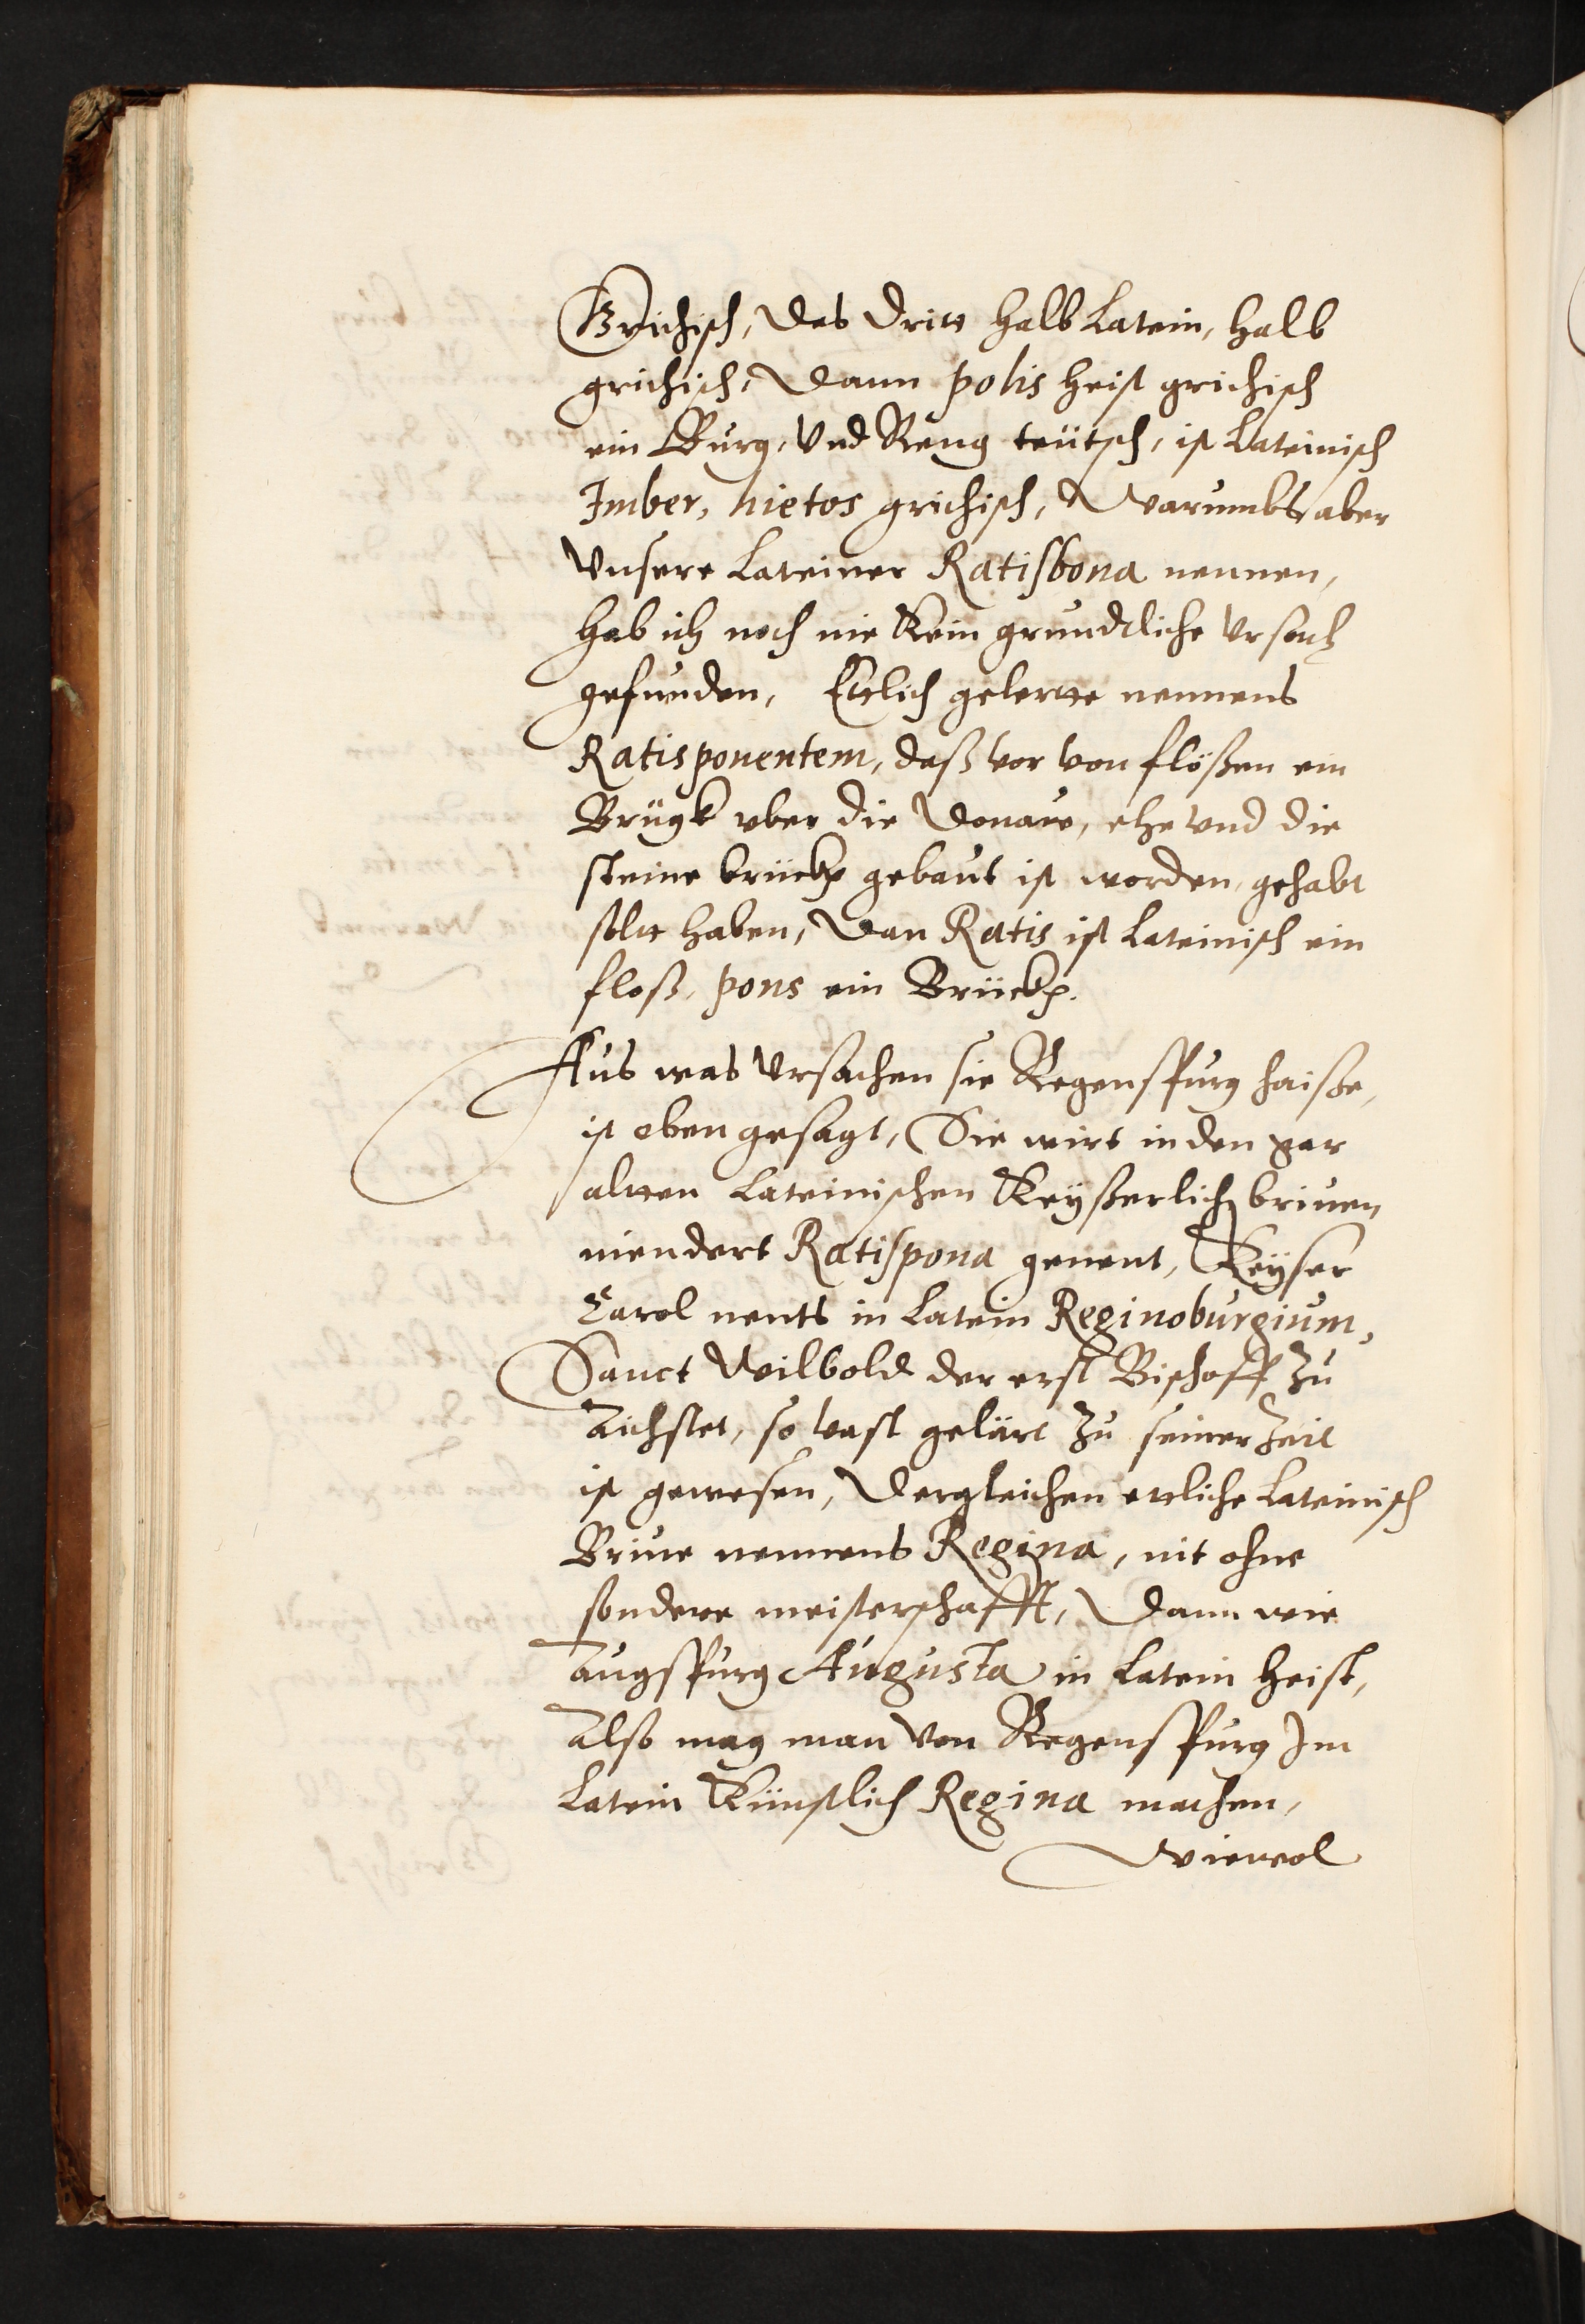 Grichisch, Das Dritt halb Latein, halb
grichisch, Dann polis heist grichisch
ein Burg, Vnd Reng teütsch, ist Lateinisch
Imber, hietos grichisch, Warumbs aber
Vnsere Lateiner Ratisbona nennen,
hab ich noch nie Kein gründtliche Vrsach
gefunden, Ettlich gelertte nennens
Ratisponentem, daß vor von flößen ein
Brügk vber die Donaw, ehe vnd die
steine brückh gebaut ist worden, gehabt
solt haben, Dan Ratis ist Lateinisch ein
floß, pons ein Brückh.
Aus was Vrsachen sie Regenspurg haiße,
ist oben gesagt, Sie wirt in den gar
altten Lateinischen Keyßerlich brieuen
niendert Ratispona genent, Keyser
Carol nents in Latein Reginoburgium,
Sanct Wilbold der erst Bischoff Zu
Aichstet, so vast gelärt Zu seiner Zeit
ist gewesen, Dergleichen ettliche Lateinisch
Briue nennens Regina, nit ohne
sondere meisterschafft, Dann wie
Augspurg Augusta in Latein heist,
Also mag man von Regenspurg Im
Latein Künstlich Regina machen,
Wiewol